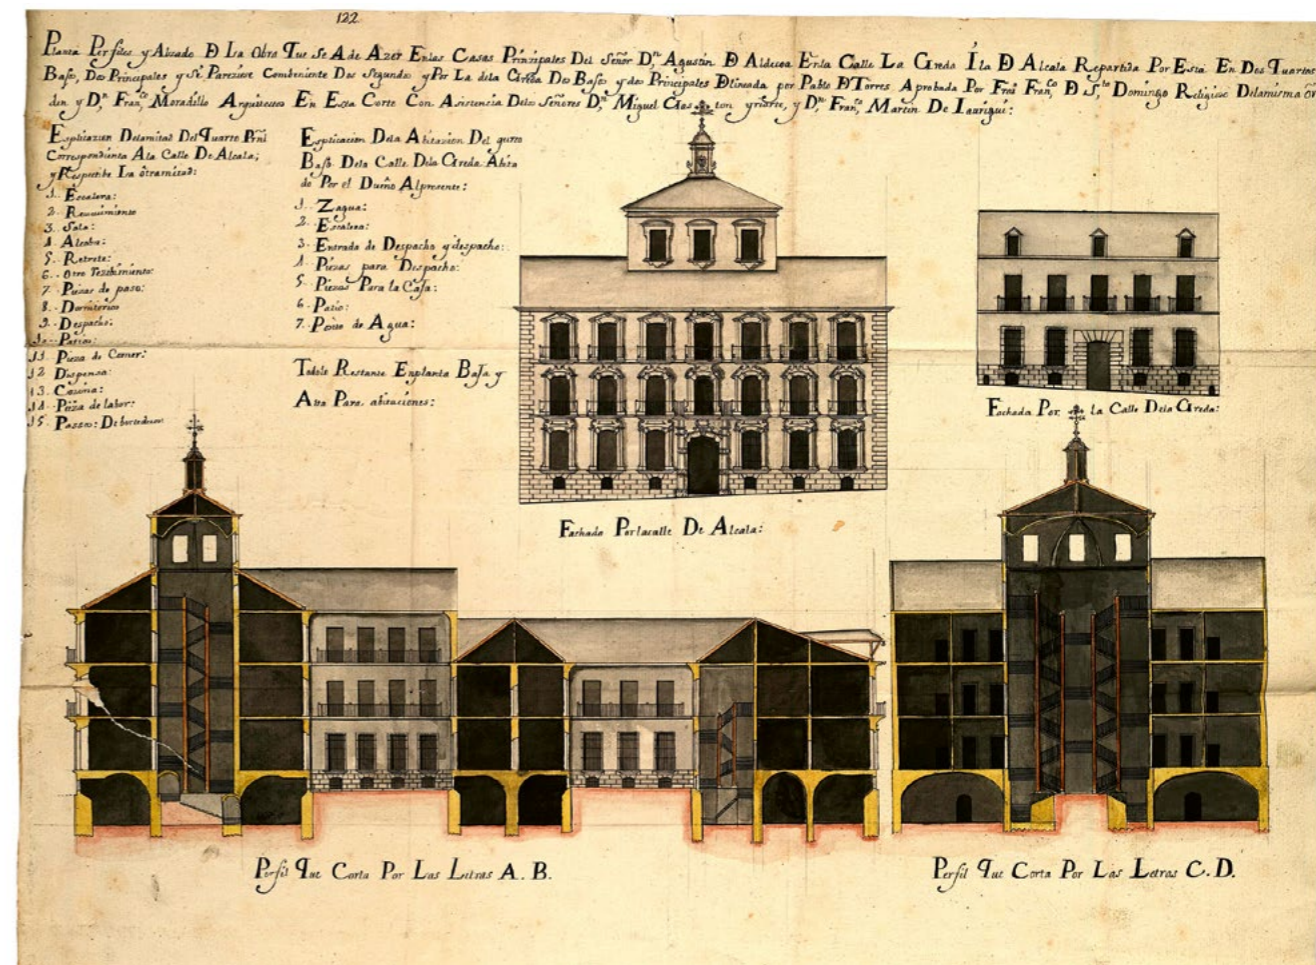 122
Planta Perfiles y Alzado D La Obra Que Se A de Azer Enlas Casas Prinzipales Del Señor Dn Agustin D Aldecoa Enla Calle La Greda Ila D Alcala Repartida Por Esta En Dos Quartos
Bajos, Dos Principales y Si Pareziere Combeniente Dos Segundos y Por La dela Greda Dos Bajos y dos Prinzipales Dlineada por Pablo D Torres Aprobada Por Frai Franco D Sto Domingo Religioso Delamisma Or
den y Dn Franco Moradillo Arquitectos En Esta Corte Con Asistencia Delos Señores Dn Miguel yriarte, y Dn Franco Martin De
Esplicazion Delamitad Del Quarto Prñl
Correspondiente Ala Calle De Alcala;
y Respectibe La otramitad:
1.. Escalera:
2.. Rezivimiento
3.. Sala:
4.. Alcoba:
5.. Retrete:
6.. Otro Rezibimiento:
7.. Piezas de paso:
8.. Dormitorios
9.. Despacho:
10.. Patios:
11.. Pieza de Comer:
12.. Dispensa:
13.. Cozina:
14.. Pieza de labor:
15.. Passos:
Esplicacion Dela Abitazion Del qurto
Bajo Dela Calle Dela Greda Abita
do Por el Dueño Alpresente:
1.. Zagua:
2.. Escalera:
3.. Entrada de Despacho y despacho:
4.. Piezas para Despacho:
5.. Piezas Para la Casa:
6.. Patio:
7.. Pozo de Agua:
Todolo Restante Enplanta Baja y
Alta Para abitaciones:
Fachada Por la Calle Dela Greda:
Fachada Porlacalle De Alcala:
Perfil Que Corta Por Las Letras A. B.
Perfil Que Corta Por Las Letras C. D.